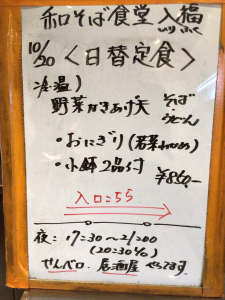 和そば食堂 入福
10/20 <日替定食>
冷温)
野菜かきあげ天 そば うどん
・おにぎり(若菜わかめ)
・小鉢2品付
¥850-
入口こちら
夜:17:30〜21:00
(20:30 %)
せんベロ 居酒屋 やってます。